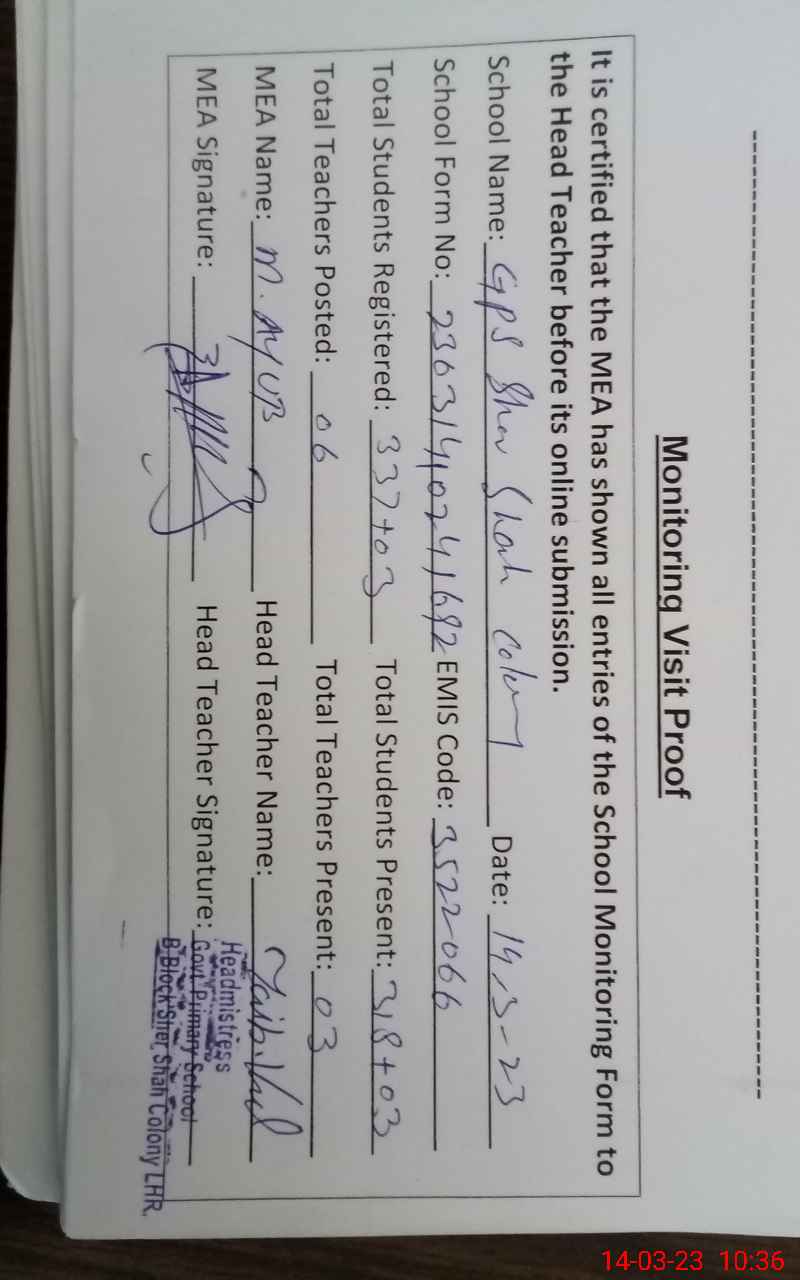 Monitoring Visit Proof
It is certified that the MEA has shown all entries of the School Monitoring Form to
the Head Teacher before its online submission.
School Name: GPS Sher Shah Colony Date: 14-3-23
School Form No: 2303141024 1692 EMIS Code: 3522066
Total Students Registered: 337+03 Total Students Present: 318+03
Total Teachers Posted: 06 Total Teachers Present: 03
MEA Name: M. AYUB Head Teacher Name:
MEA Signature: Head Teacher Signature:
Headmistress
Govt Primary School
B-Block Sher Shah Colony LHR.
14-03-23 10:36